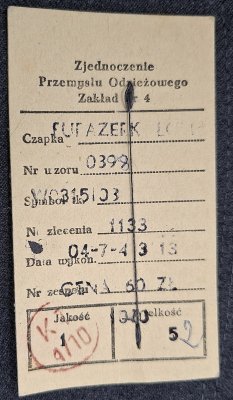 Zjednoczenie
Przemysłu Odzieżowego
Zakład Nr 4
Czapka FURAZERK
Nr wzoru 0399
Symbol tk. W0315103
Nr zlecenia 1133
Data wykon. 04-7-4 3 13
Nr zespołu CENA 60 ZŁ
Jakość
1
Wielkość
5 2
K
9/10